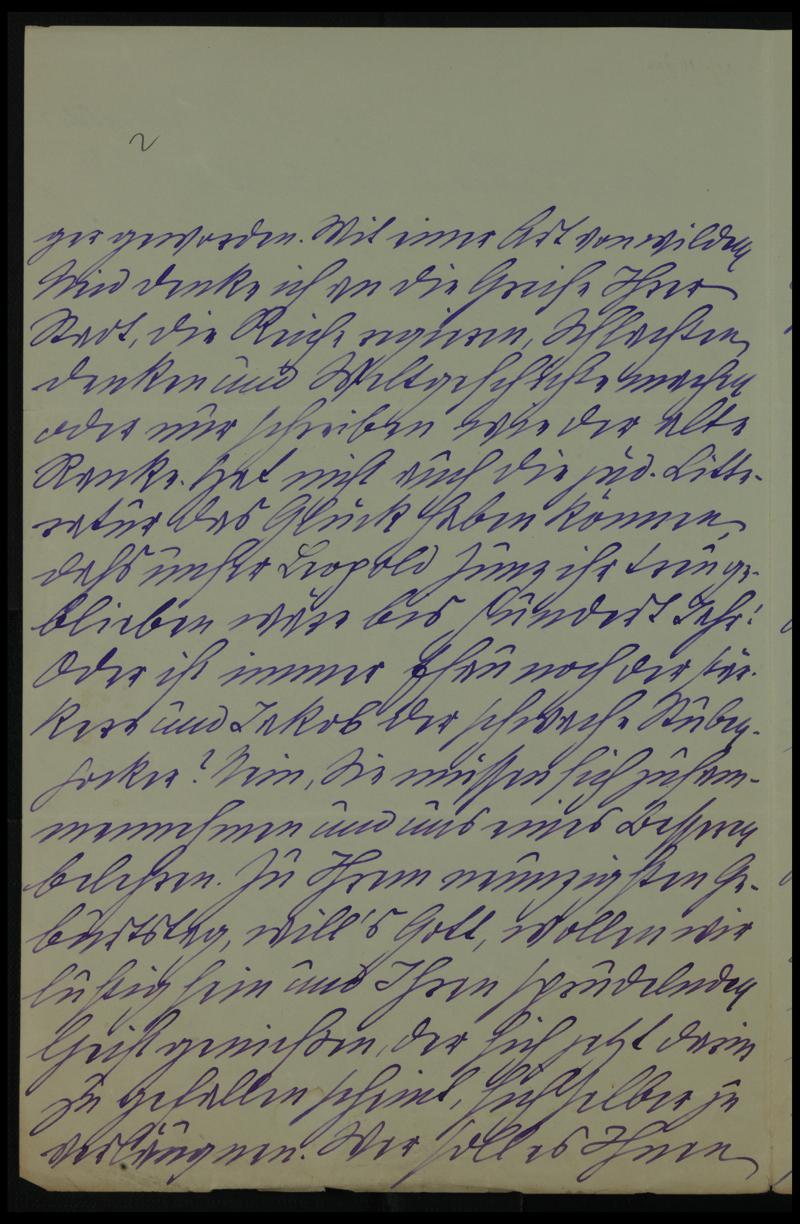 2
ger geworden. Mit einer Art von wildem
Neid denke ich an die Greise Ihrer
Stadt, die Reiche regieren, Schlachten
denken und Weltgeschichte machen
oder nur schreiben wie der alte
Ranke. Hat nicht auch die jüd. Litte-
ratur das Glück haben können,
dass unser Leopold Zunz ihr treu ge-
blieben wäre bis hundert Jahr!
Oder ist immer Esau noch der stär-
kere und Jakob der schwache Stuben-
hocker? Nein, Sie müssen sich zusam-
mennehmen und uns eines Bessern
belehren. Zu Ihrem neunzigsten Ge-
burtstag, will's Gott, wollen wir
lustig sein und Ihren sprudelnden
Geist genießen, der sich jetzt darin
zu gefallen scheint, sich selber zu
verläugnen. Wer soll es Ihnen